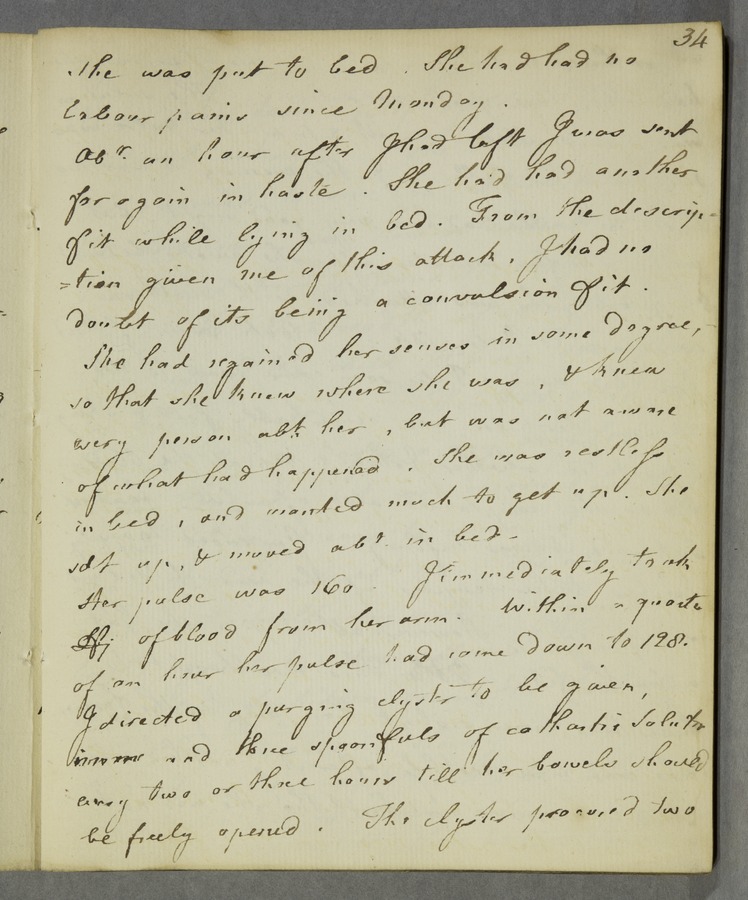 34
She was put to bed. She had had no
labour pains since Monday.
Abt. an hour after I had left I was sent
for again in haste. She had had another
fit while lying in bed. From the descrip-
=tion given me of this attack, I had no
doubt of its being a convulsion fit.
She had regained her senses in some degree,
so that she knew where she was, & knew
every person abt. her, but was not aware
of what had happened. She was restless
in bed, and wanted much to get up. She
sat up, & moved abt. in bed.
Her pulse was 160. I immediately took
of blood from her arm. Within a quarter
of an hour her pulse had come down to 128.
I directed a purging clyster to be given,
and three spoonfuls of cathartic Solution
every two or three hours till her bowels should
be freely opened. The clyster procured two